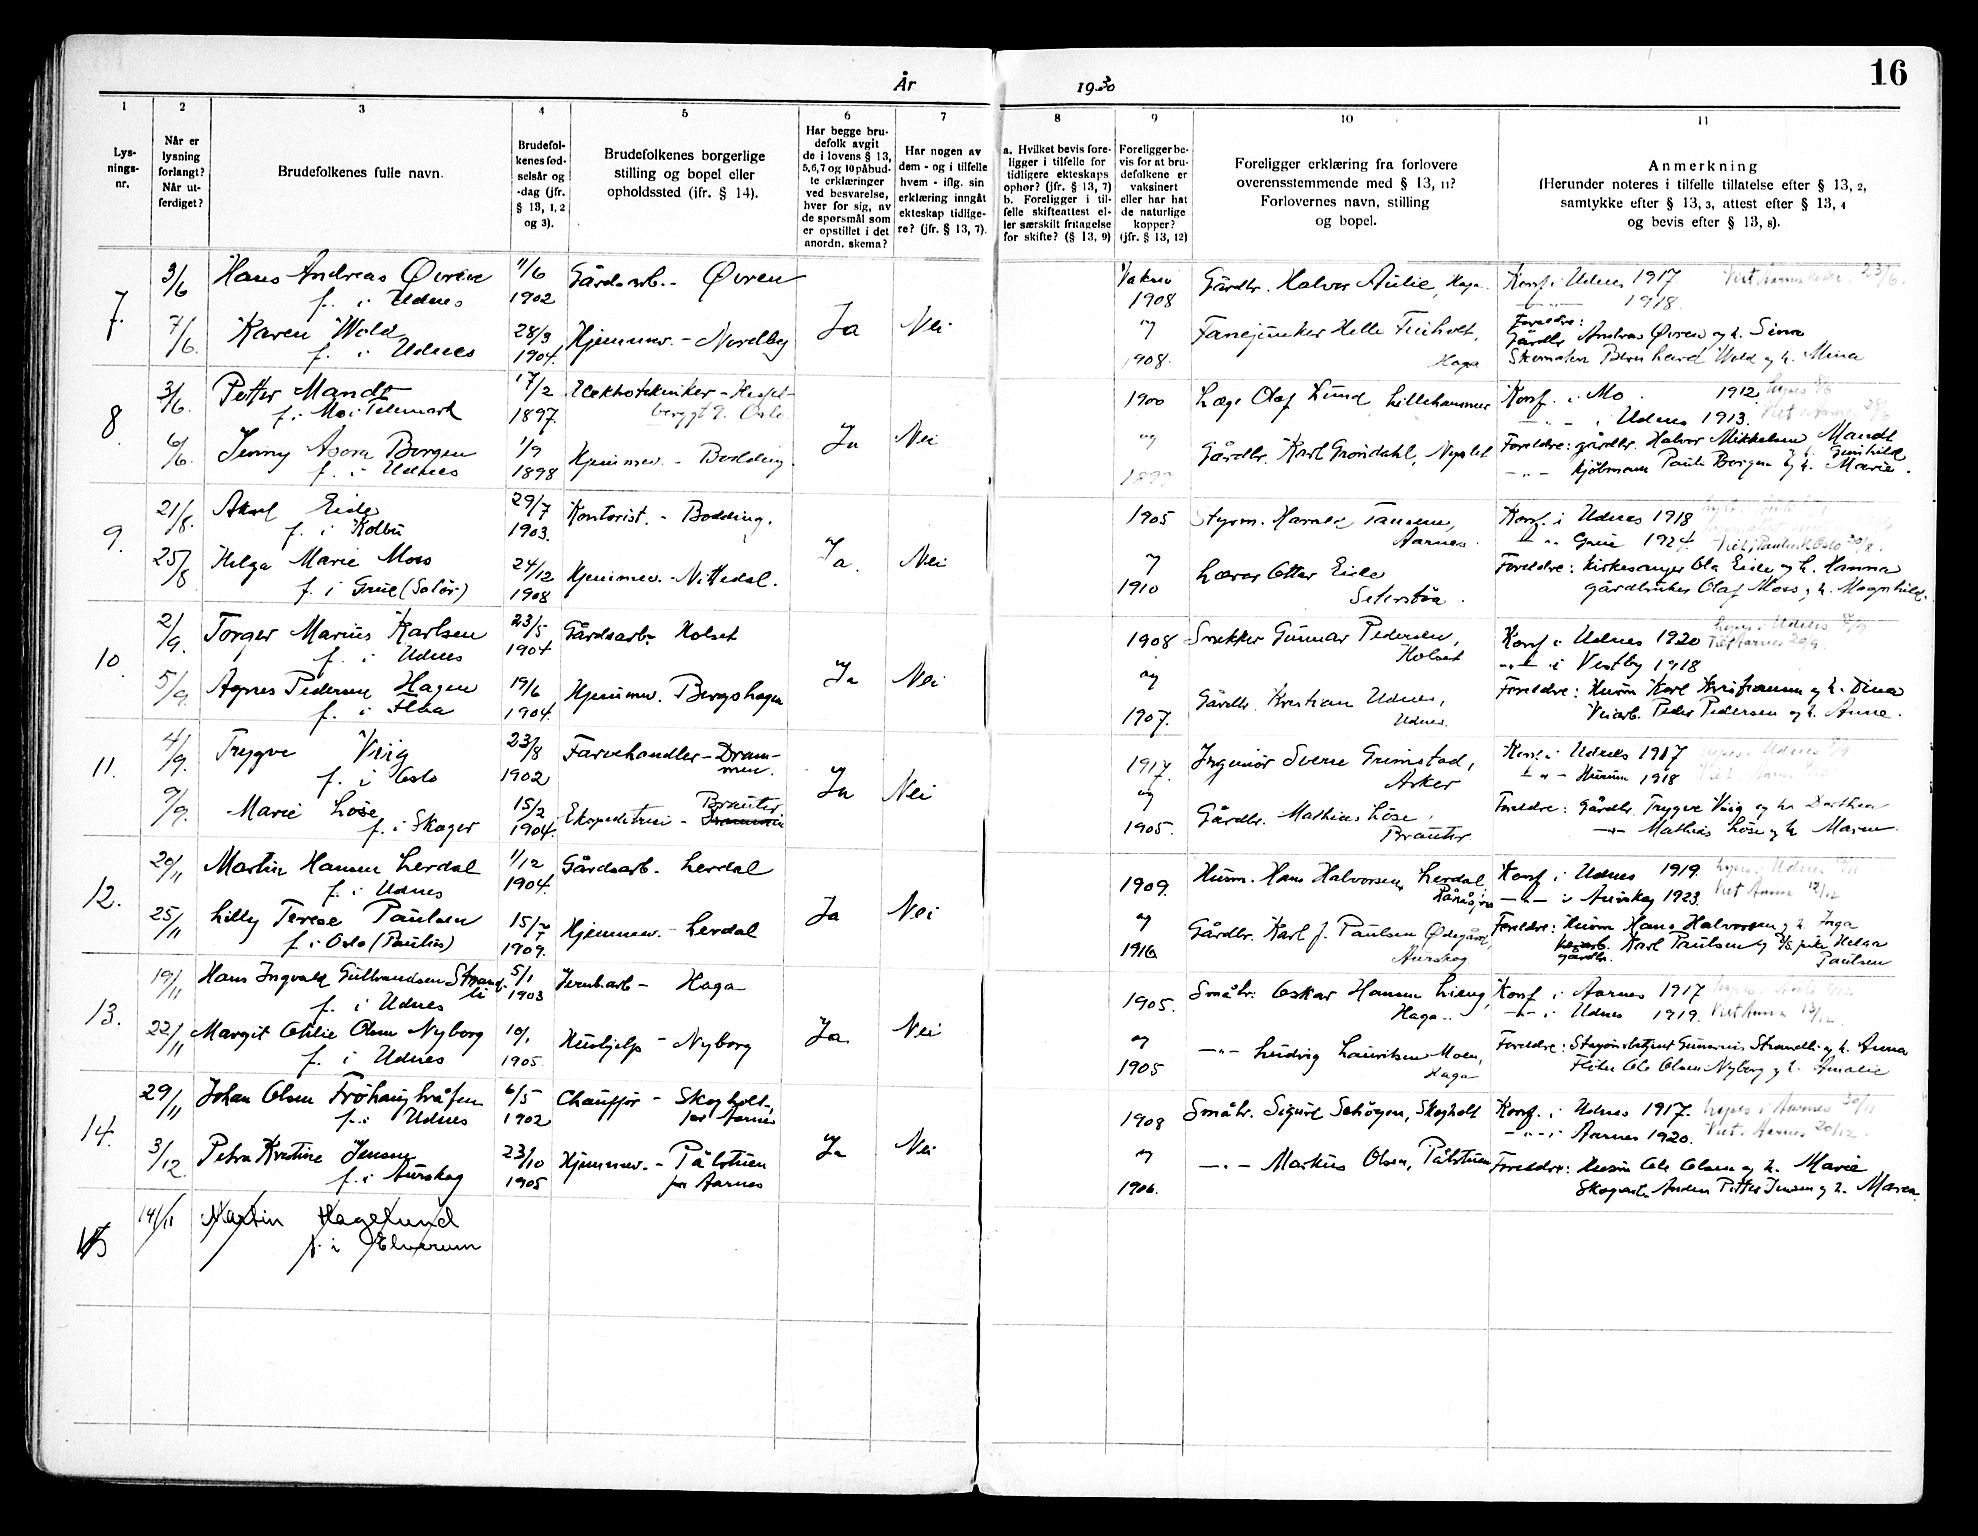 År 1930
16
1
2
3
4
5
6
7
8
9
10
11
Lys-
nings-
nr.
Når er
lysning
forlangt?
Når ut-
ferdiget?
Brudefolkenes fulle navn.
Brudefol-
kenes fød-
selsår og
-dag (jfr.
§ 13, 1, 2
og 3).
Brudefolkenes borgerlige
stilling og bopel eller
opholdssted (ifr. § 14).
Har begge bru-
defolk avgit
de i lovens § 13,
5,6,7 og 10 påbud-
te erklæringer
ved besvarelse,
hver for sig, av
de spørsmål som
er opstillet i det
anordn. skema?
Har nogen av
dem - og i tilfelle
hvem - iflg. sin
erklæring inngåt
ekteskap tidlige-
re? (jfr. § 13, 7).
a. Hvilket bevis fore-
ligger i tilfelle for
tidligere ekteskaps
ophør? (jfr. § 13, 7)
b. Foreligger i til-
felle skifteattest el-
ler særskilt fritagelse
for skifte? (§ 13, 9)
Foreligger be-
vis for at bru-
defolkene er
vaksinert
eller har hat
de naturlige
kopper?
(jfr. § 13, 12)
Foreligger erklæring fra forlovere
overensstemmende med § 13, 11?
Forlovernes navn, stilling
og bopel.
Anmerkning
(Herunder noteres i tilfelle tillatelse efter § 13, 2,
samtykke efter § 13, 3, attest efter § 13, 4
og bevis efter § 13, 8).
7.
3/6
7/6.
Hans Andreas Øvren
f. i Udnes
Karen Wold
f. i Udnes
11/6
1902
28/3
1904.
Gårdsarb. - Øvren
Hjemmev. - Nordby
Ja
Nei
Vaksin
1908
og
1908.
Gårdbr. Halvor Aulie, Haga.
Fanejunker Helle Finholt,
Haga
Konf. i Udnes 1917. 23/6.
1918.
Foreldre:
Gårdbr Andreas Øvren og h. Sina
Skomaker Bernhard Wold og h. Mina
8.
3/6.
6/6.
Petter Mandt
f. i Mo i Telemark
Jenny Asora Borgen
f. i Udnes
17/2
1897.
1/9
1898
Elektrotekniker -
Oslo.
Hjemmev. - Bodding.
Ja
Nei
1900
og
1899
Læge Olaf Lund Lillehammer
Gårdbr. Karl Grøndahl,
Konf. i Mo 1912.
- " - i Udnes 1913.
Foreldre: gårdbr. Halvor Mikkelsen Mandt
og h. Gunhild
- " - kjøbmann Paul Borgen og h. Marie.
9.
21/8.
25/8
Aksel Eide
f. i Kolbu
Helga Marie Moss
f. i Grue (Solør)
29/7
1903.
24/12
1908
Kontorist. - Bodding.
Hjemmev. - Nittedal.
Ja.
Nei
1905
og
1910
Styrm. Harald Hansen,
Aarnes.
Lærer Otter Eide
Seterstøa.
Konf. i Udnes 1918
Grue 1924. 30/8.
Foreldre: kirkesanger Ola Eide og h. Hanna
gårdbruker Olaf Moss og h. Magnhild.
10.
2/9.
5/9.
Torger Marius Karlsen
f. i Udnes
Agnes Pedersen Hagen
f. i Flaa
23/5
1904
19/6
1904.
Gårdsarb - Holset
Hjemmev. Bergshagen
Ja
Nei
1908
og
1907.
Snekker Gunnar Pedersen,
Holset
Gårdbr. Kristian Udnes,
Udnes.
Konf. i Udnes 1920 20/9.
- " - i Vestby 1918
Foreldre: Husm Karl Kristiansen og h. Dina
Veiarb. Peder Pedersen og h. Anne.
11.
4/9.
9/9.
Trygve Viig
f. i Oslo
Marie Løse
f. i Skoger
23/8
1902
15/2
1904.
Farvehandler - Dram-
men.
Ekspeditrise - Brauter
Ja
Nei
1917.
og
1905.
Ingeniør Sverre Grimstad,
Asker
Gårdbr. Mathias Løse,
Brauter
Konf. i Udnes 1917
- " - Hurum 1918
Foreldre: Gårdbr. Trygve Viig og h. Dorthea
- " - Mathias Løse og h. Maren.
12.
20/11
25/11
Martin Hansen Lerdal
f. i Udnes
Lilly Terese Paulsen
f. i Oslo (Paulus)
1/12
1904.
15/7
1909.
Gårdsarb. Lerdal
Hjemmev. - Lerdal
Ja
Nei
1909.
og
1916
Husm. Hans Halvorsen, Lerdal,
Rånåsfoss
Gårdbr. Karl J. Paulsen Ødegård,
Aurskog
Konf. i Udnes 1919.
- " - i Aurskog 1923. 12/12
Foreldre: Husm Hans Halvorsen og h. Inga
gårdbr. Karl Paulsen og pike Helga
Paulsen
13.
19/11
22/11
Hans Ingvald Gulbrandsen Strand-
li
f. i Udnes
Margit Othlie Olsen Nyborg
f. i Udnes
5/1
1903
10/1
1905.
Jernbarb - Haga
Hushjelp - Nyborg
Ja.
Nei
1905.
og
1905
Småbr. Oskar Hansen Lieng,
Haga.
- " - Ludvig Lauritsen Moen,
Haga
Konf i Aarnes 1917
- " - i Udnes 1919. Viet Aarnes 13/12
Foreldre: Stasjonsbetjent Gunerius Strandli og h. Anna
Fløter Ole Olsen Nyborg og h. Amalie
14.
29/11
3/12
Johan Olsen Frøhaughråsen
f. i Udnes
Petra Kristine Jensen
f. i Aurskog
6/5
1902
23/10
1905
Chauffør - Skogholt,
for Aarnes
Hjemmev. - Pålstuen
for Aarnes
Ja
Nei
1908
og
1906.
Småbr. Sigurd Schøyen, Skogholt
- " - Markus Olsen, Pålstuen
Konf. i Udnes 1917. Lyses i Aarnes 30/11
- " - i Aarnes 1920. Viet i Aarnes 20/12.
Foreldre: Husm Ole Olsen og h. Marie
Skogarb. Anders Petter Jensen og h. Maren
15
14/11
Martin Hagelund
f. i Elverum